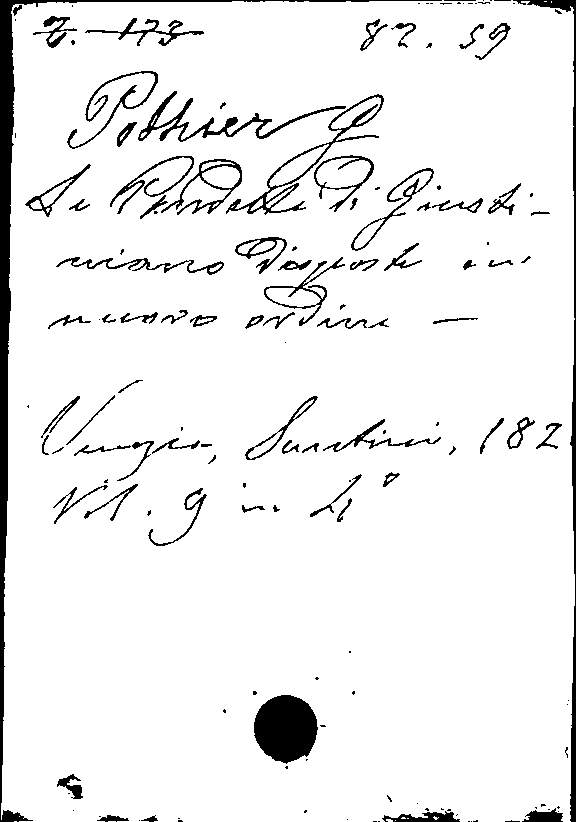 Z. 173 82. 59
Pothier G
Le Pandette di Giusti-
niano disposte in
nuovo ordine —
Venezia, Santini, 182
Vol. 9 in 4°